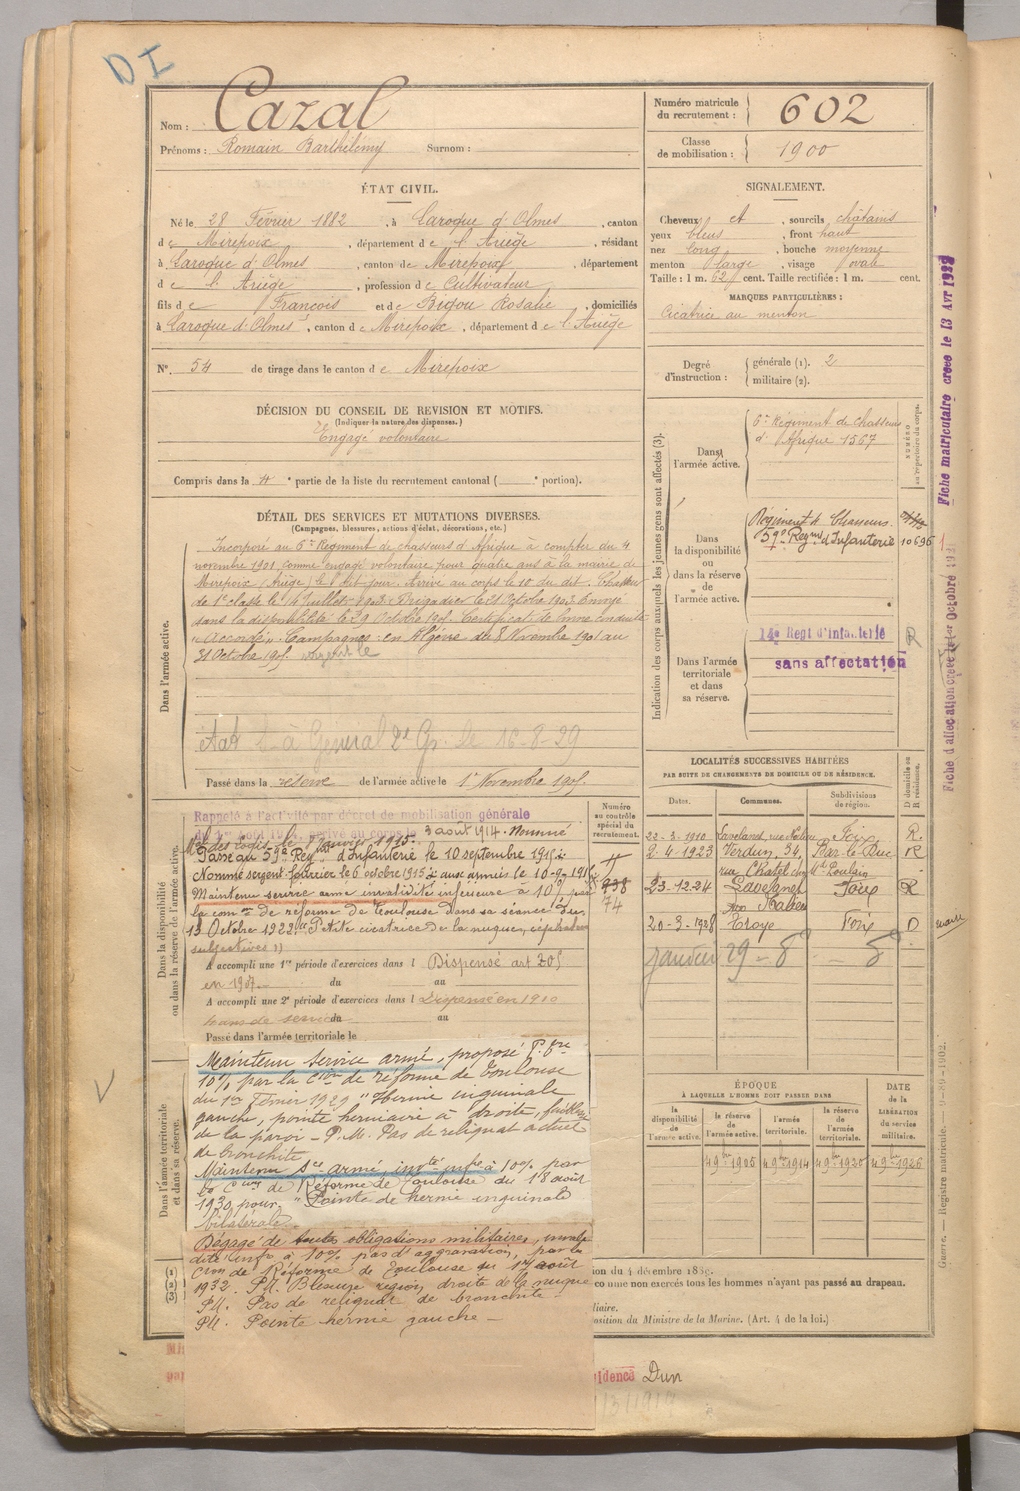 DI
Nom : Cazal
Prénoms : Romain Barthélémy Surnom :
Numéro matricule du recrutement : 602
Classe de mobilisation : 1900
ÉTAT CIVIL.
Né le 28 Février 1882, à Laroque d'Olmes, canton
de Mirepoix, département de l'Ariège, résidant
à Laroque d'Olmes, canton de Mirepoix, département
de l'Ariège, profession de Cultivateur
fils de François et de Bigou Rosalie, domiciliés
à Laroque d'Olmes, canton de Mirepoix, département de l'Ariège
N°. 54 de tirage dans le canton de Mirepoix
SIGNALEMENT.
Cheveux et, sourcils châtains
yeux bleus, front haut
nez long, bouche moyenne
menton large, visage ovale
Taille : 1 m. 62 cent. Taille rectifiée : 1 m. cent.
MARQUES PARTICULIÈRES :
Cicatrice au menton
Degré d'instruction : générale (1). 2
militaire (2).
DÉCISION DU CONSEIL DE REVISION ET MOTIFS.
(Indiquer la nature des dispenses.)
Engagé volontaire
Compris dans la 4e partie de la liste du recrutement cantonal ( e portion).
DÉTAIL DES SERVICES ET MUTATIONS DIVERSES.
(Campagnes, blessures, actions d'éclat, décorations, etc.)
Dans l'armée active.
Incorporé au 6e Régiment de chasseurs d'Afrique à compter du 4
novembre 1901 comme engagé volontaire pour quatre ans à la mairie de
Mirepoix (Ariège) le dit jour. Arrivé au corps le 10 du dit. Chasseur
de 1e classe le 14 Juillet 1903. Brigadier le 31 Octobre 1903. Envoyé
dans la disponibilité le 29 Octobre 1905. Certificat de bonne conduite
"Accordé". Campagnes : en Algérie du 8 Novembre 1901 au
31 Octobre 1905.
Général 2e Gr. le 16-8-29
Passé dans la réserve de l'armée active le 1er Novembre 1905.
Indication des corps auxquels les jeunes gens sont affectés (3).
NUMÉRO au répertoire du corps.
Dans l'armée active.
6e Régiment de chasseurs
d'Afrique 1567
Dans la disponibilité ou dans la réserve de l'armée active.
Régiment de Chasseurs
59e Regmt d'Infanterie 10696
Dans l'armée territoriale et dans sa réserve.
14e Regt d'Infanterie
sans affectation
R
Fiche matriculaire créée le 13 AVR 1932
Fiche d'affectation créée le 1er Octobre 1931
LOCALITÉS SUCCESSIVES HABITÉES
PAR SUITE DE CHANGEMENTS DE DOMICILE OU DE RÉSIDENCE.
Dates. Communes. Subdivisions de région. D domicile ou R résidence.
22-3-1910 Lavelanet, rue Foix R.
2-4-1923 Verdun, 34, Bar-le-Duc R
rue Chatel
23-12-24 Lavelanet Foix R
20-3-1928 Troye Foix D
janvier 29 - 8 - 8
Dans la disponibilité ou dans la réserve de l'armée active.
Numéro au contrôle spécial du recrutement.
738
74
Rappelé à l'activité par décret de mobilisation générale
du 1er Août 1914, arrivé au corps le 3 août 1914. Nommé
Mal des logis le janvier 1915.
Passé au 59e Regmt d'Infanterie le 10 septembre 1915
Nommé sergent-fourrier le 6 octobre 1915
Maintenu service armé invalidité inférieure à 10% par
la comon de réforme de Toulouse dans sa séance du
13 Octobre 1922. "Petite cicatrice de la nuque, céphalées
subjectives"
A accompli une 1re période d'exercices dans l Dispensé art
en 1907 du au
A accompli une 2e période d'exercices dans l Dispensé en 1910
du au
Passé dans l'armée territoriale le
Dans l'armée territoriale et dans sa réserve.
Maintenu service armé, proposé P.
10% par la Cion de réforme de Toulouse
du 1er Février 1929 "Hernie inguinale
gauche, pointe herniaire à droite, faiblesse
de la paroi - P.M. Pas de reliquat actuel
de bronchite
Maintenu Sce armé, invté infre à 10% par
la Cion de Réforme de Toulouse du 18 août
1930 pour "Pointe de hernie inguinale
bilatérale.
Dégagé de toutes obligations militaires, invali-
dité infre à 10% pas d'aggravation, par la
Cion de Réforme de Toulouse du 1er août
1932. P.M. Blessure région droite de la nuque
P.M. Pas de reliquat de bronchite.
P.M. Pointe hernie gauche -
ÉPOQUE
À LAQUELLE L'HOMME DOIT PASSER DANS
la disponibilité de l'armée active. la réserve de l'armée active. l'armée territoriale. la réserve de l'armée territoriale.
DATE de la LIBÉRATION du service militaire.
1905 1914 1920 1926
ion du 4 décembre 18
comme non exercés tous les hommes n'ayant pas passé au drapeau.
liaire.
osition du Ministre de la Marine. (Art. 4 de la loi.)
(1)
(2)
(3)
Guerre. — Registre matricule.
idence Dun